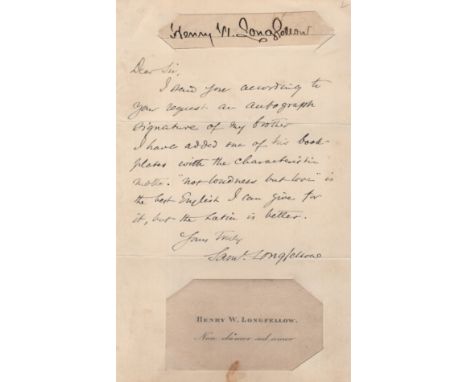 Henry W. Longfellow
Dear Sir,
I send you according to
your request an autograph
signature of my brother
I have added one of his book-
plates with the characteristic
motto. "not loudness but love" is
the best English I can give for
it, but the Latin is better.
Yours Truly
Saml. Longfellow
HENRY W. LONGFELLOW.
Non clamor sed amor